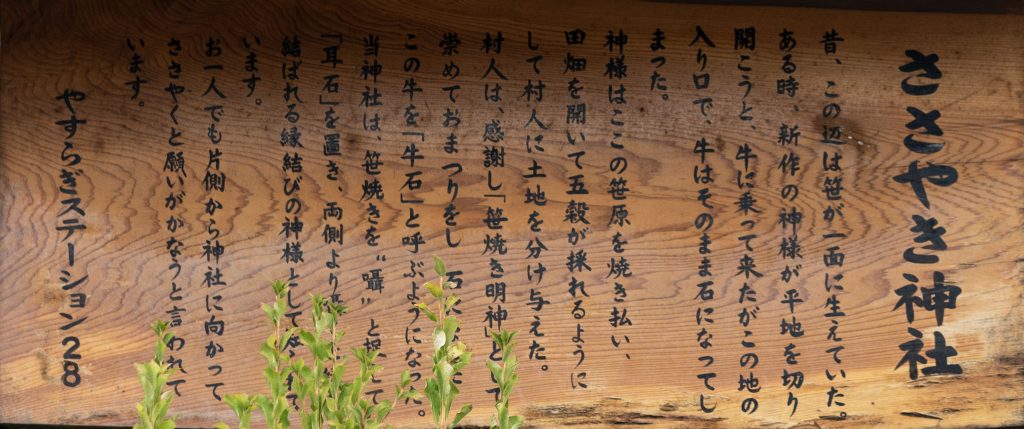 ささやき神社
昔、この辺は笹が一面に生えていた。
ある時、新作の神様が平地を切り
開こうと、牛に乗って来たがこの地の
入り口で、牛はそのまま石になってし
まった。
神様はここの笹原を焼き払い、
田畑を開いて五穀が採れるように
して村人に土地を分け与えた。
村人は、感謝し「笹焼き明神」として
崇めておまつりをし 石に
この牛を「牛石」と呼ぶようになった。
当神社は、笹焼きを〝囁〟と
「耳石」を置き、両側より
結ばれる縁結びの神様として
います。
お一人でも片側から神社に向かって
ささやくと願いがかなうと言われて
います。
やすらぎステーション28